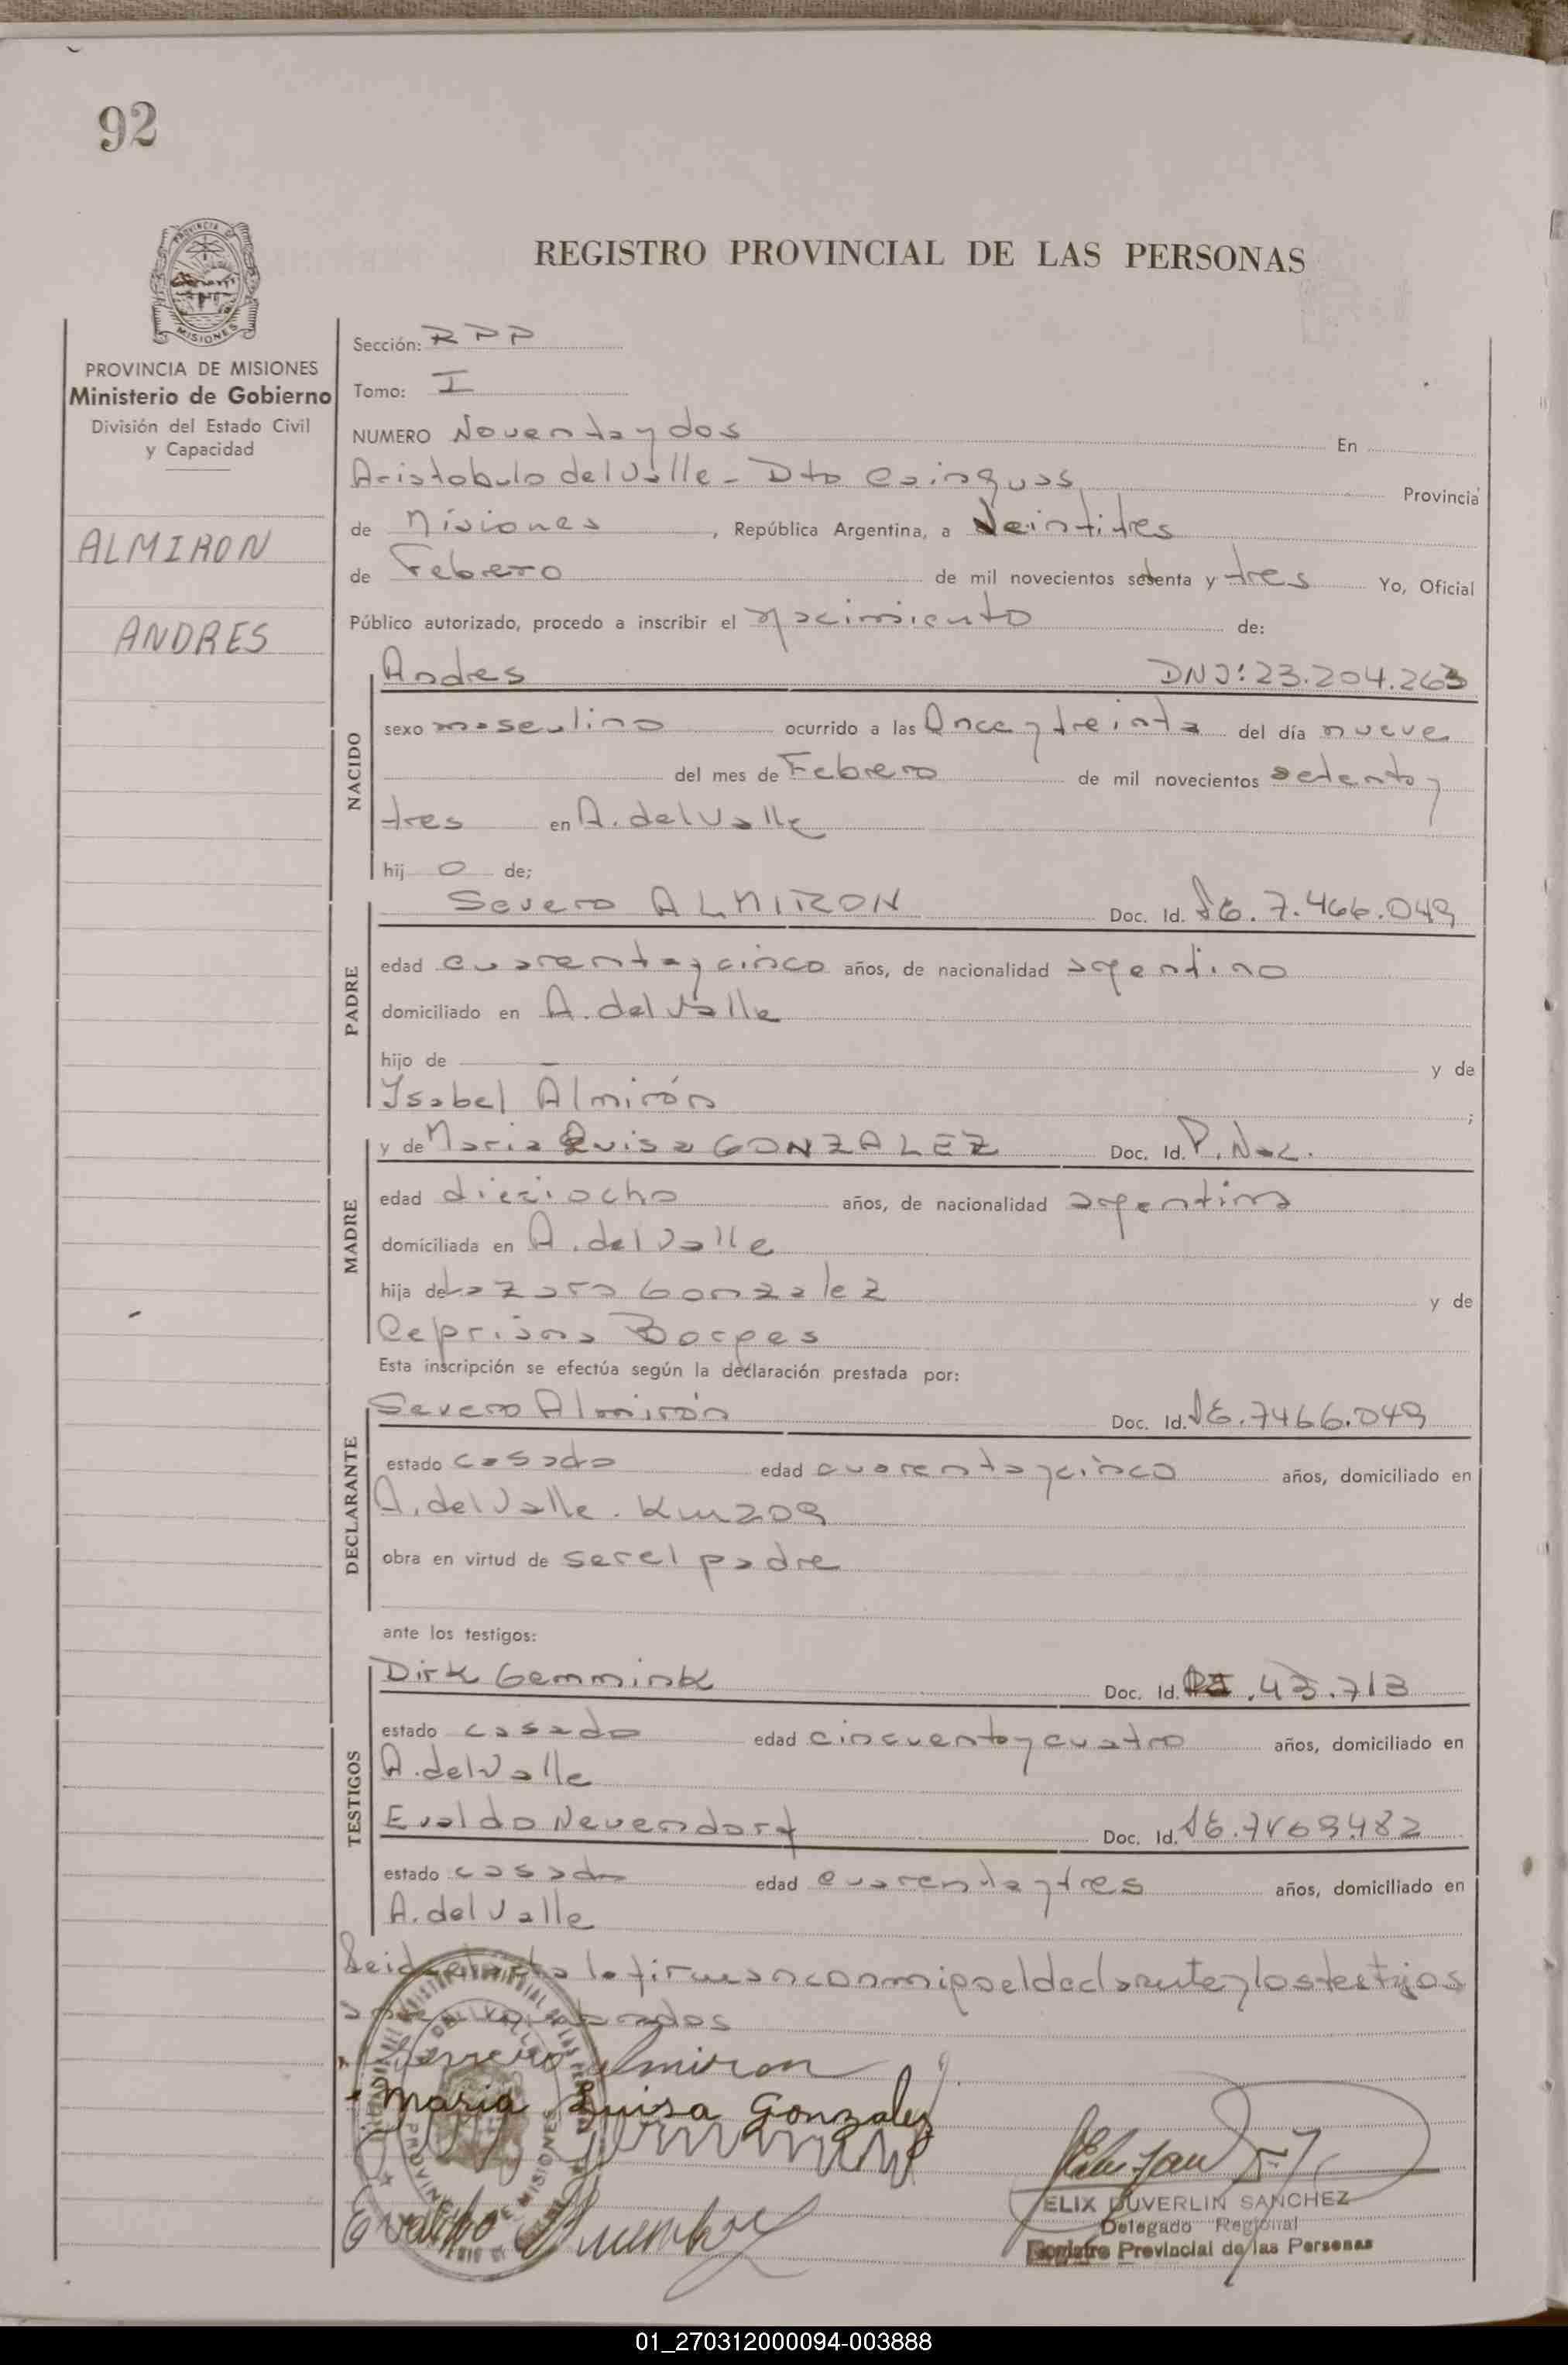 92
PROVINCIA DE
MISIONES
REGISTRO PROVINCIAL DE LAS PERSONAS
PROVINCIA DE MISIONES
Ministerio de Gobierno
División del Estado Civil
y Capacidad
ALMIRON
ANDRES
Sección: RPP
Tomo: I
NUMERO Noventa y dos En
Aristobulo del Valle - Dto Cainguas Provincia
de Misiones, República Argentina, a Veintitres
de Febrero de mil novecientos setenta y tres Yo, Oficial
Público autorizado, procedo a inscribir el Nacimiento de:
NACIDO
Andres DNI: 23.204.263
sexo masculino ocurrido a las Once y treinta del día nueve
del mes de Febrero de mil novecientos setenta y
tres en A. del Valle
hij o de;
PADRE
Severo ALMIRON Doc. Id. LE. 7.466.049
edad cuarenta y cinco años, de nacionalidad argentino
domiciliado en A. del Valle
hijo de — y de
Ysabel Almirón ;
MADRE
y de Maria Luisa GONZALEZ Doc. Id. P. Nac.
edad dieciocho años, de nacionalidad argentina
domiciliada en A. del Valle
hija de Lazaro Gonzalez y de
Cepriana Borges
Esta inscripción se efectúa según la declaración prestada por:
DECLARANTE
Severo Almirón Doc. Id. LE. 7466.049
estado casado edad cuarenta y cinco años, domiciliado en
A. del Valle. Km 209
obra en virtud de ser el padre
ante los testigos:
TESTIGOS
Dirk Gemmink Doc. Id. .43.713
estado casado edad cincuenta y cuatro años, domiciliado en
A. del Valle
Evaldo Neuendorf Doc. Id. LE. 7469.482
estado casado edad cuarenta y tres años, domiciliado en
A. del Valle
Leida el acta la firman conmigo el declarante y los testigos
Almiron
Maria Luisa Gonzalez
Evaldo
ELIX DUVERLIN SANCHEZ
Delegado Regional
Registro Provincial de las Personas
01_270312000094-003888